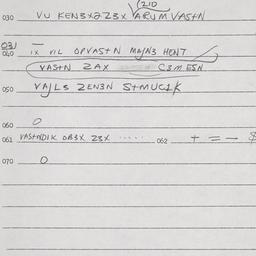 (210
030 VU KENƎXƏZ3X VARUM VASTN
031
040 IX VIL OPVASTN MAJN3 HENT
VASTN ZAX C3M ESN
050 VAJLS ZEN3N STMUC1K
060 O
061 VASTNDIK OB3X Z3X ..... 062 + = - $
070 O